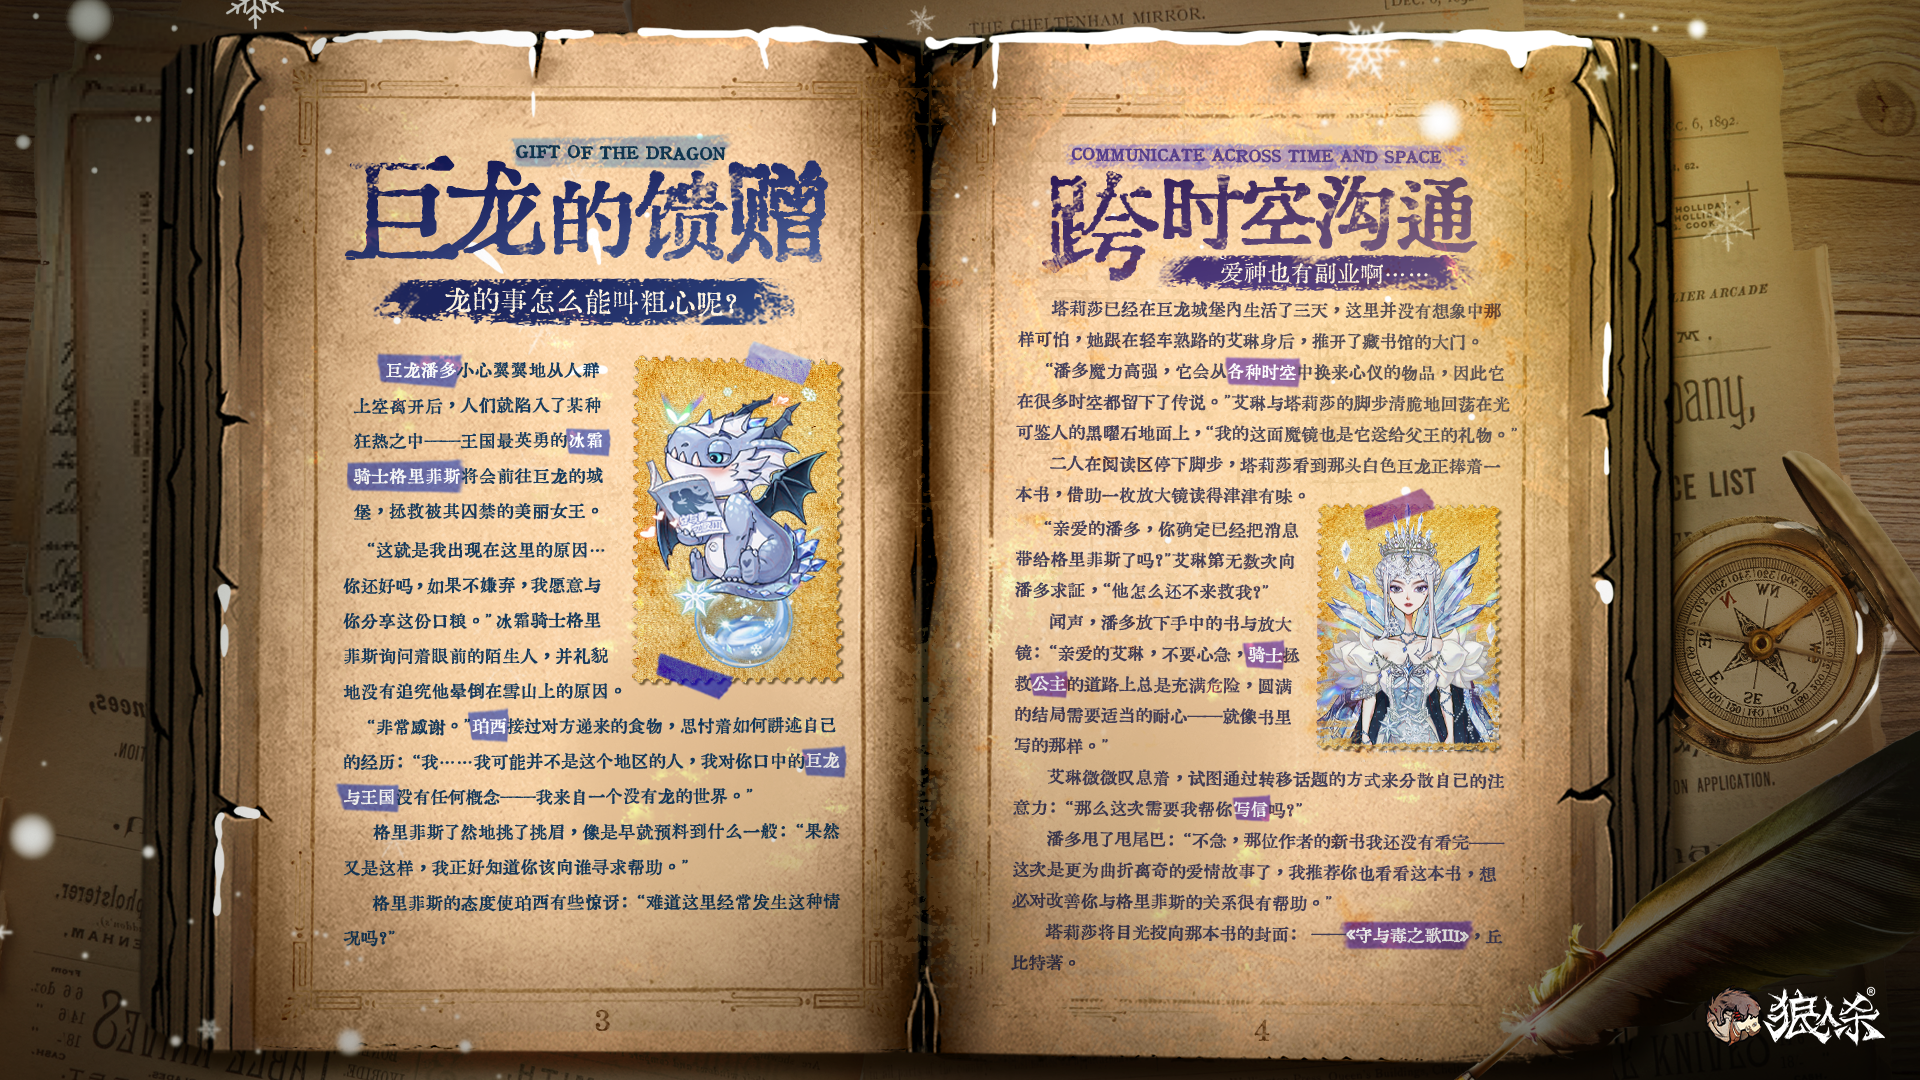 GIFT OF THE DRAGON
巨龙的馈赠
龙的事怎么能叫粗心呢?
巨龙潘多小心翼翼地从人群
上空离开后，人们就陷入了某种
狂热之中——王国最英勇的冰霜
骑士格里菲斯将会前往巨龙的城
堡，拯救被其囚禁的美丽女王。
“这就是我出现在这里的原因…
你还好吗，如果不嫌弃，我愿意与
你分享这份口粮。”冰霜骑士格里
菲斯询问着眼前的陌生人，并礼貌
地没有追究他晕倒在雪山上的原因。
“非常感谢。”珀西接过对方递来的食物，思忖着如何讲述自己
的经历：“我……我可能并不是这个地区的人，我对你口中的巨龙
与王国没有任何概念——我来自一个没有龙的世界。”
格里菲斯了然地挑了挑眉，像是早就预料到什么一般：“果然
又是这样，我正好知道你该向谁寻求帮助。”
格里菲斯的态度使珀西有些惊讶：“难道这里经常发生这种情
况吗?”
3
COMMUNICATE ACROSS TIME AND SPACE
跨时空沟通
爱神也有副业啊……
塔莉莎已经在巨龙城堡内生活了三天，这里并没有想象中那
样可怕，她跟在轻车熟路的艾琳身后，推开了藏书馆的大门。
“潘多魔力高强，它会从各种时空中换来心仪的物品，因此它
在很多时空都留下了传说。”艾琳与塔莉莎的脚步清脆地回荡在光
可鉴人的黑曜石地面上，“我的这面魔镜也是它送给父王的礼物。”
二人在阅读区停下脚步，塔莉莎看到那头白色巨龙正捧着一
本书，借助一枚放大镜读得津津有味。
“亲爱的潘多，你确定已经把消息
带给格里菲斯了吗?”艾琳第无数次向
潘多求証，“他怎么还不来救我?”
闻声，潘多放下手中的书与放大
镜：“亲爱的艾琳，不要心急，骑士拯
救公主的道路上总是充满危险，圆满
的结局需要适当的耐心——就像书里
写的那样。”
艾琳微微叹息着，试图通过转移话题的方式来分散自己的注
意力：“那么这次需要我帮你写信吗?”
潘多甩了甩尾巴：“不急，那位作者的新书我还没有看完——
这次是更为曲折离奇的爱情故事了，我推荐你也看看这本书，想
必对改善你与格里菲斯的关系很有帮助。”
塔莉莎将目光投向那本书的封面：——《守与毒之歌III》，丘
比特著。
4
THE CHELTENHAM MIRROR.
C. 6, 1892.
62.
HOLLIDAY
HOLLI
COOK
LIER ARCADE
pany,
CE LIST
ON APPLICATION.
狼人杀®